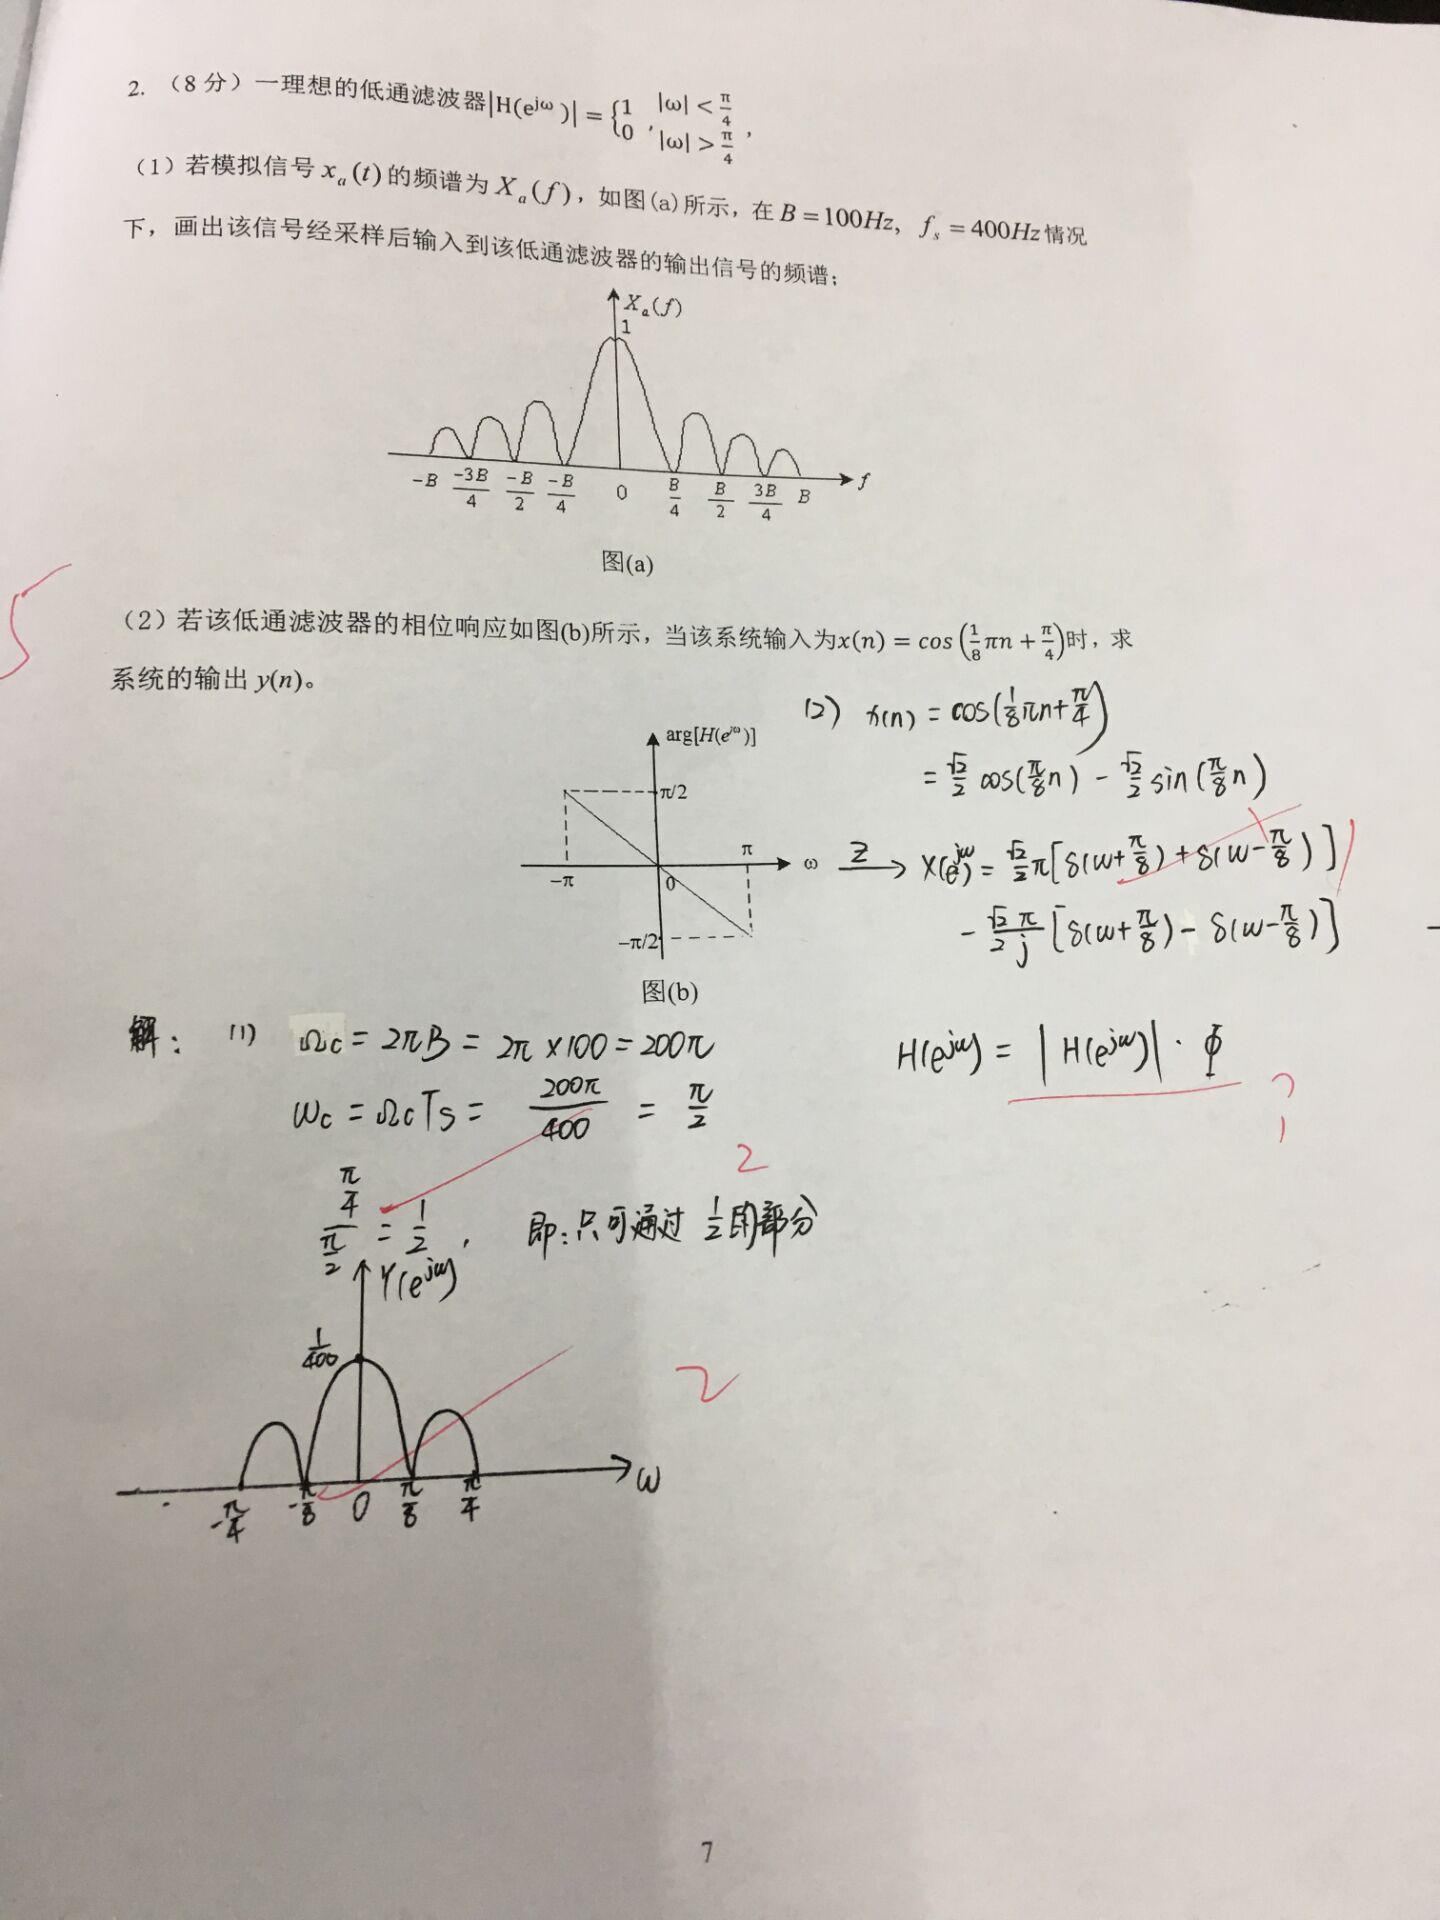 2. （8 分）一理想的低通滤波器|H(e^{jω})| = {1, |ω| < π/4
0, |ω| > π/4 ,
（1）若模拟信号 x_a(t) 的频谱为 X_a(f)，如图(a)所示，在 B = 100Hz, f_s = 400Hz 情况
下，画出该信号经采样后输入到该低通滤波器的输出信号的频谱；
X_a(f)
1
-B -3B/4 -B/2 -B/4 0 B/4 B/2 3B/4 B f
图(a)
5
（2）若该低通滤波器的相位响应如图(b)所示，当该系统输入为x(n) = cos(1/8 πn + π/4)时，求
系统的输出 y(n)。
arg[H(e^{jω})]
π/2
-π 0 π ω
-π/2
图(b)
(2) x(n) = cos(1/8 πn + π/4)
= √2/2 cos(π/8 n) - √2/2 sin(π/8 n)
Z→ X(e^{jω}) = √2/2 π[δ(ω+π/8) + δ(ω-π/8)]
- √2/2 π/j [δ(ω+π/8) - δ(ω-π/8)]
H(e^{jω}) = |H(e^{jω})| · Φ
?
1
解： (1) Ωc = 2πB = 2π×100 = 200π
ωc = ΩcTs = 200π/400 = π/2
2
(π/4)/(π/2) = 1/2 , 即：只可通过 1/2 的部分
Y(e^{jω})
1/400
2
-π/4 -π/8 0 π/8 π/4 ω
7